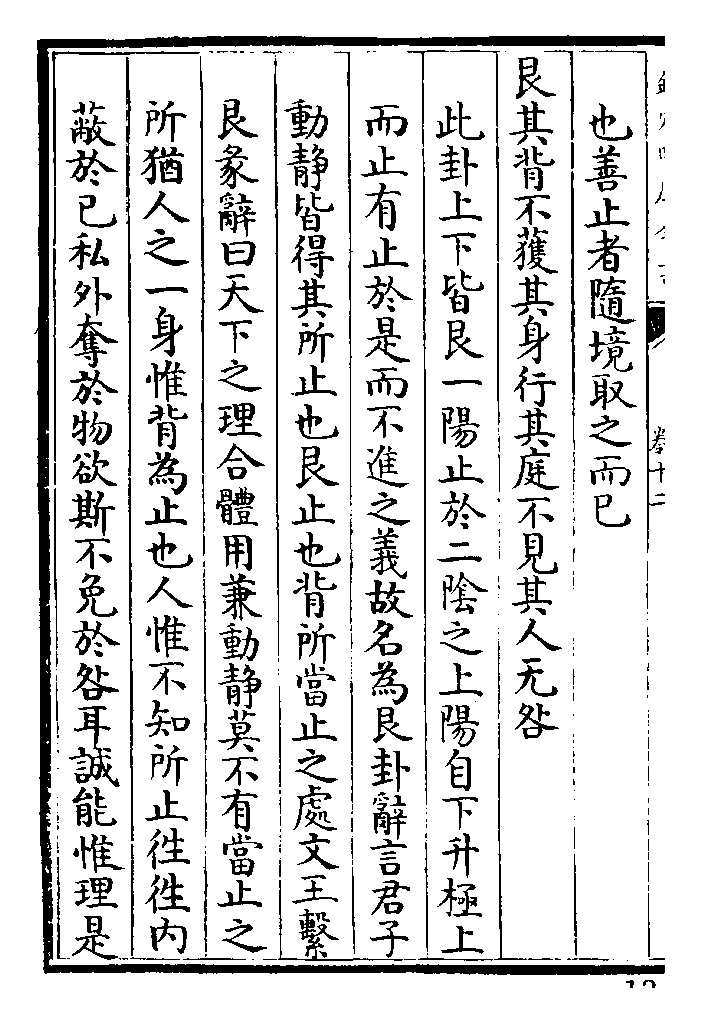 也善止者隨境取之而已
艮其背不獲其身行其庭不見其人无咎
此卦上下皆艮一陽止於二陰之上陽自下升極上
而止有止於是而不進之義故名為艮卦辭言君子
動靜皆得其所止也艮止也背所當止之處文王繫
艮彖辭曰天下之理合體用兼動静莫不有當止之
所猶人之一身惟背為止也人惟不知所止徃徃内
蔽於已私外奪於物欲斯不免於咎耳誠能惟理是